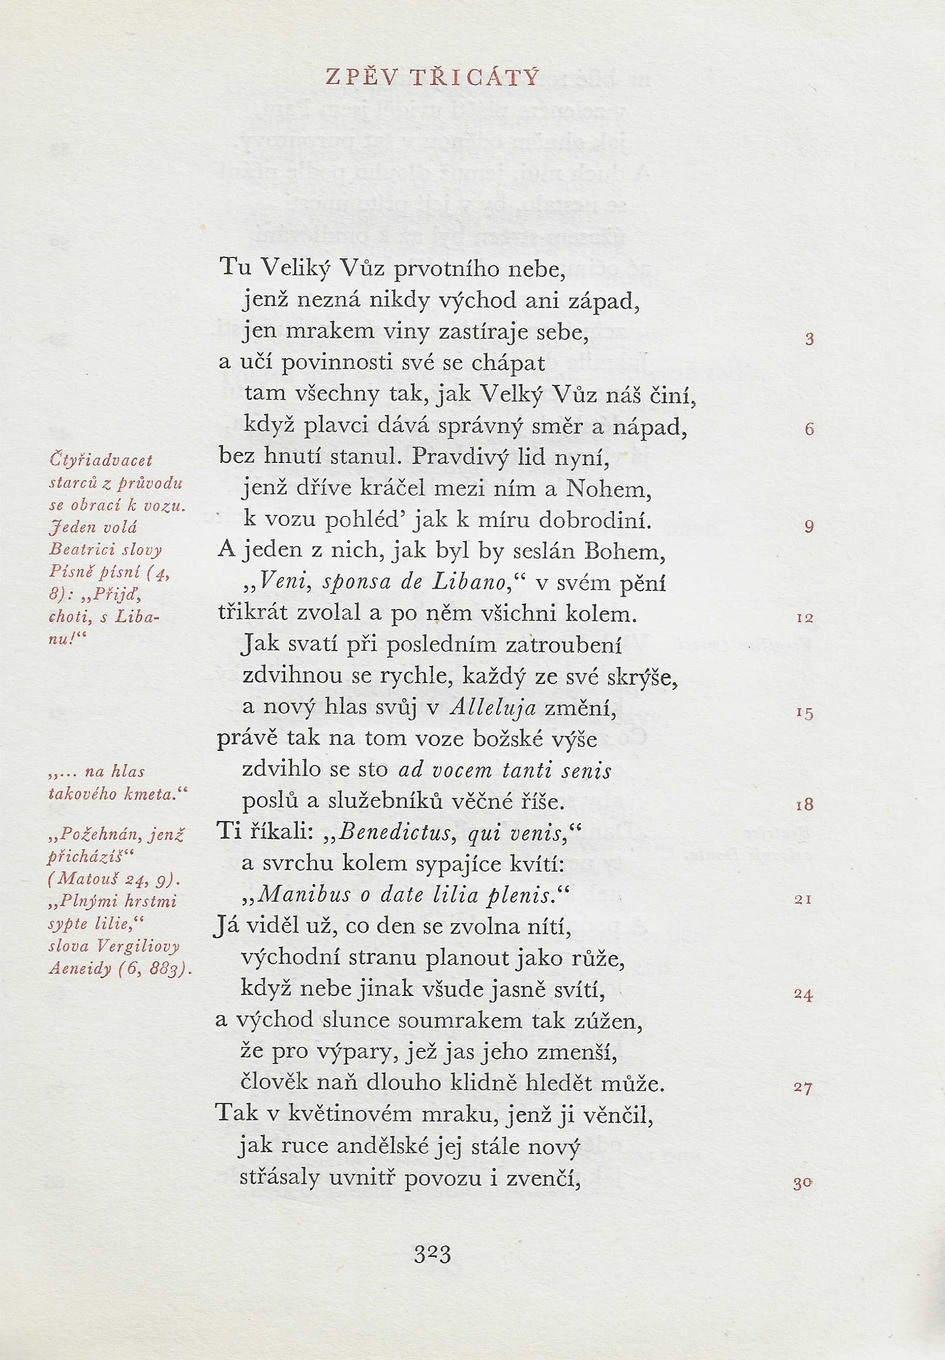 ZPĚV TŘICÁTÝ
Tu Veliký Vůz prvotního nebe,
jenž nezná nikdy východ ani západ,
jen mrakem viny zastíraje sebe,
3
a učí povinnosti své se chápat
tam všechny tak, jak Velký Vůz náš činí,
když plavci dává správný směr a nápad,
6
bez hnutí stanul. Pravdivý lid nyní,
jenž dříve kráčel mezi ním a Nohem,
k vozu pohléd’ jak k míru dobrodiní.
9
A jeden z nich, jak byl by seslán Bohem,
„Veni, sponsa de Libano,“ v svém pění
třikrát zvolal a po něm všichni kolem.
12
Jak svatí při posledním zatroubení
zdvihnou se rychle, každý ze své skrýše,
a nový hlas svůj v Alleluja změní,
15
právě tak na tom voze božské výše
zdvihlo se sto ad vocem tanti senis
poslů a služebníků věčné říše.
18
Ti říkali: „Benedictus, qui venis,“
a svrchu kolem sypajíce kvítí:
„Manibus o date lilia plenis.“
21
Já viděl už, co den se zvolna nítí,
východní stranu planout jako růže,
když nebe jinak všude jasně svítí,
24
a východ slunce soumrakem tak zúžen,
že pro výpary, jež jas jeho zmenší,
člověk naň dlouho klidně hledět může.
27
Tak v květinovém mraku, jenž ji věnčil,
jak ruce andělské jej stále nový
střásaly uvnitř povozu i zvenčí,
30
Čtyřiadvacet
starců z průvodu
se obrací k vozu.
Jeden volá
Beatrici slovy
Písně písní (4,
8): „Přijď,
choti, s Liba-
nu!“
„... na hlas
takového kmeta.“
„Požehnán, jenž
přicházíš“
(Matouš 24, 9).
„Plnými hrstmi
sypte lilie,“
slova Vergiliovy
Aeneidy (6, 883).
323